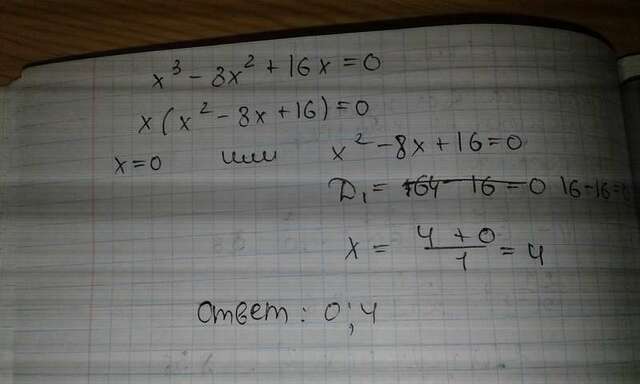 x³ - 8x² + 16x = 0
x(x² - 8x + 16) = 0
x = 0 или x² - 8x + 16 = 0
D₁ = 16-16=0
x = (4 + 0)/1 = 4
Ответ: 0; 4